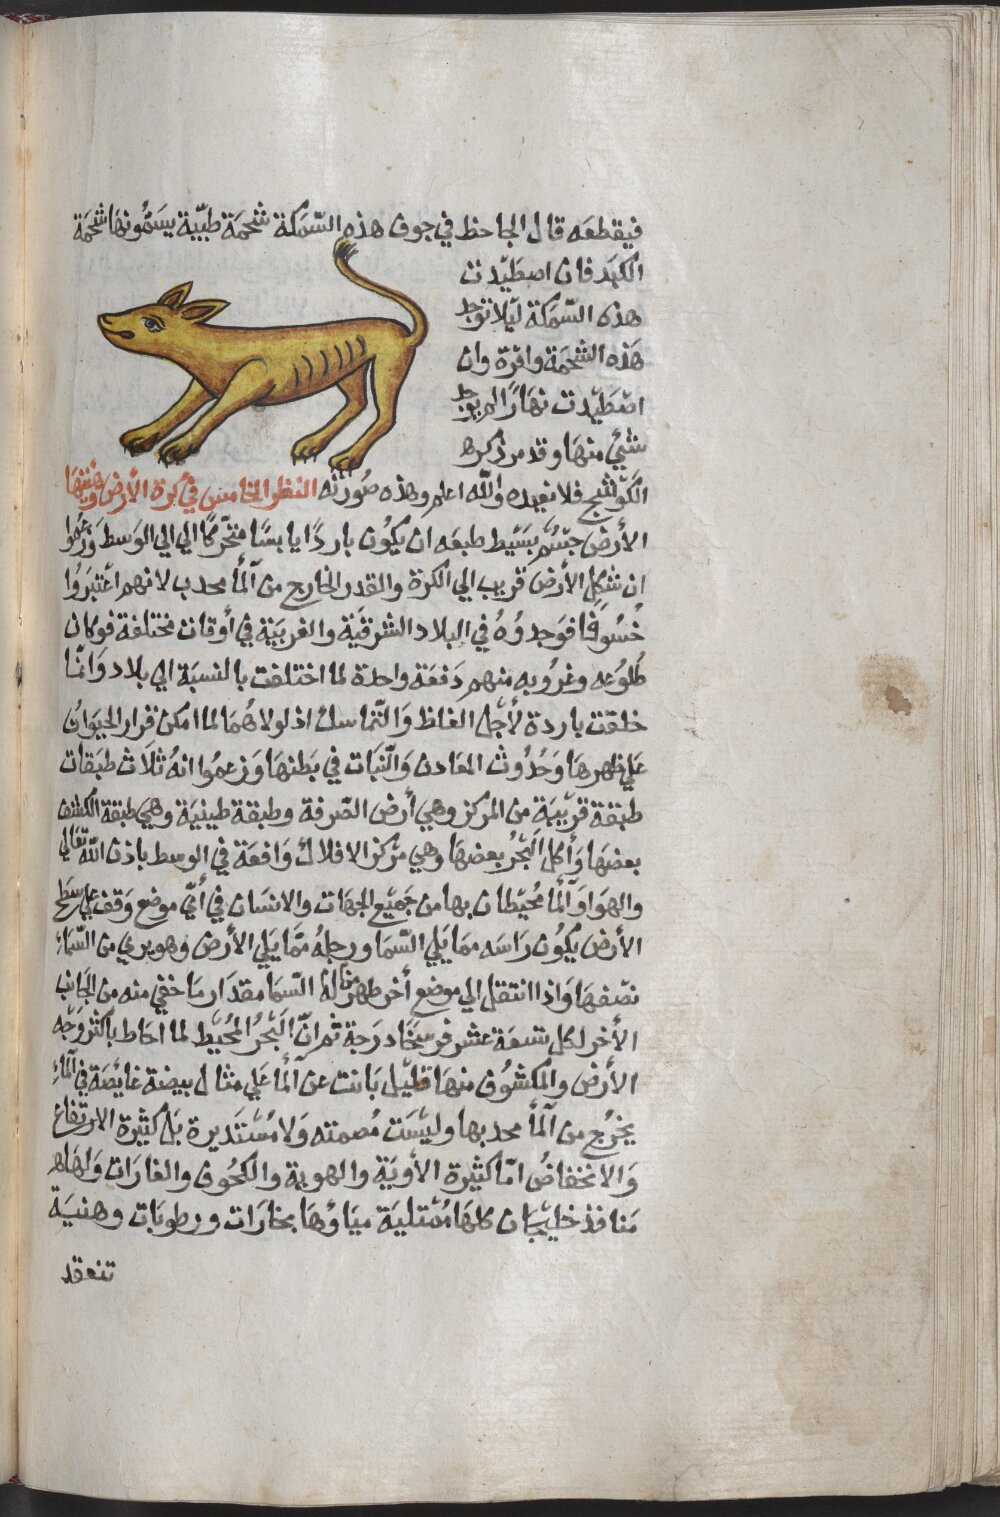 فيقطعه قال الجاحظ في جوف هذه السّمكة شحمة طيّبة يسَمّونهَا شحمَة
الكبَد فان اصطيَدت
هذه السّمكة ليلا توجد
هَذه الشحمَة وافرة وان
اصْطَيدت نهَارًا لم يوجد
شيئ منهَا وقد مر ذكره
الكَوْسَج فلا نعيده والله اعلم وهذه صُورته النظر الخامس في كرة الأرض وهيئتها
الأرضُ جسْم بسَيط طبعَه ان يكوُن باردًا يابسًا متحّركا الي الي الوَسط وَزعَموا
ان شكل الأرض قريب الي الكرة والقدر الخارج من ألمأ محدب لانهم اعْتبَرَوُا
خُسُوفًا فوَجدوُهُ في البلاد الشرقيَة والغربيَة في أوقات مختلفة فوكان
طُلوُعه وغروُبه منهم دَفعَة واحدة لما اختلفت بالنسبَة الي بلاد وَانّما
خلقت باردة لأجْل الغاظ وَالتّماسك اذ لولا هُمَا لما امكن قرار الحيَوان
عَلي ظهرهَا وَحُدوُث المعَادن وَالنّبَات في بَطنهَا وَزعمُوا انهُ ثلاَث طبَقات
طبقة قريبَة من المركز وهي أرض الصّرفة وطبقة طينيَة وهي طبقة الكشف
بعضهَا وَأكل البَحْرُ بعضهَا وهي مرْكز الافلاك وَاقعَة في الوسط باذن الله تعَالي
والهوَا وَألمأ مُحيْطان بها من جَميْع الجهَات والانسَان في أيّ موضع وَقف علي سطح
الأرض يكوُن رَاسَه ممَا يَلي السّمَا ورجلهُ ممّا يَلي الأرض وهو يري من السّمَاء
نصْفهَا وَاذا انتقل الي موضع أخر ظهر لهُ السّمَا مقدَار مَا خفي منه من الجَانب
الأخر لكل تسعَة عشر فرسَخًا درَجة ثم انّ البَحْرُ المُحيْط لما احَاط باكثر وَجْه
الأرض والمكشوُف منهَا قليْل بَانت عن ألمأ عَلي مثال بيضة غايصَة في ألماء
يخرُج من ألمأ محدبها وليْسَت مُصمته وَلا مُسْتديرة بَل كثيْرة الارتفاع
وَالانخفاضُ امّا كثيْرة الأويَة والهوية والكحُوف والغارَات وَلهَا
مَنافذ خليْجَان كلهَا مُمْتلية ميَاوُهَا بخارَات ورطوبَات وهنيَة
تنعقد